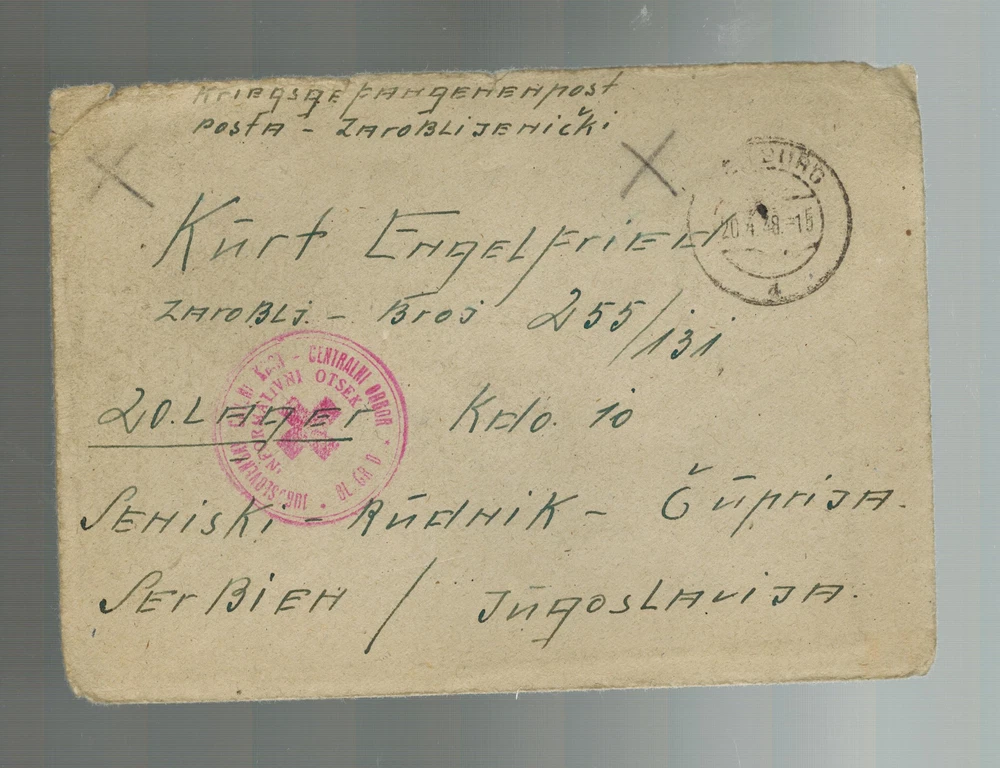 Kriegsgefangenenpost
Posta - Zaroblijenički
Kūrt Engelfried
Zaroblj. - Broj 255/131
20. Lager Kdo. 10
Seniski - Rūdnik - Čūprija.
Serbien / Jūgoslavija.
20.4.48.-15
a
CENTRALNI ODBOR
OTSEK